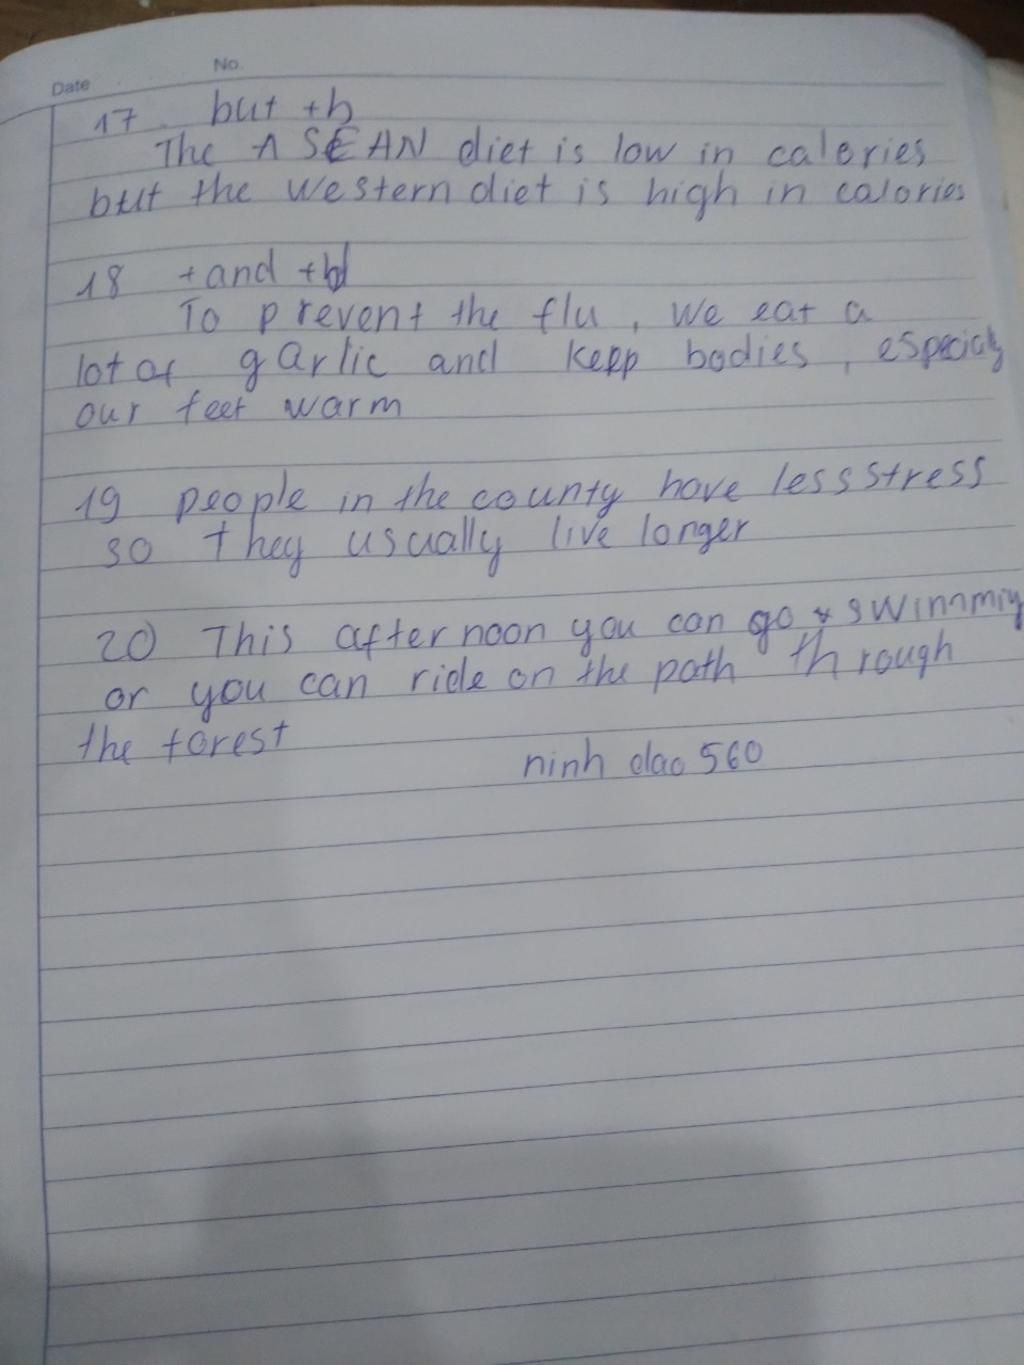 No.
Date
17. but +b
The ASEAN diet is low in calories
but the Western diet is high in calories
18 +and +d
To prevent the flu, We eat a
lot of garlic and kepp bodies, especialy
our feet warm
19 people in the county have less stress
so they usually live longer
20 This afternoon you can go swinnming
or you can ride on the path through
the forest
ninh dao 560